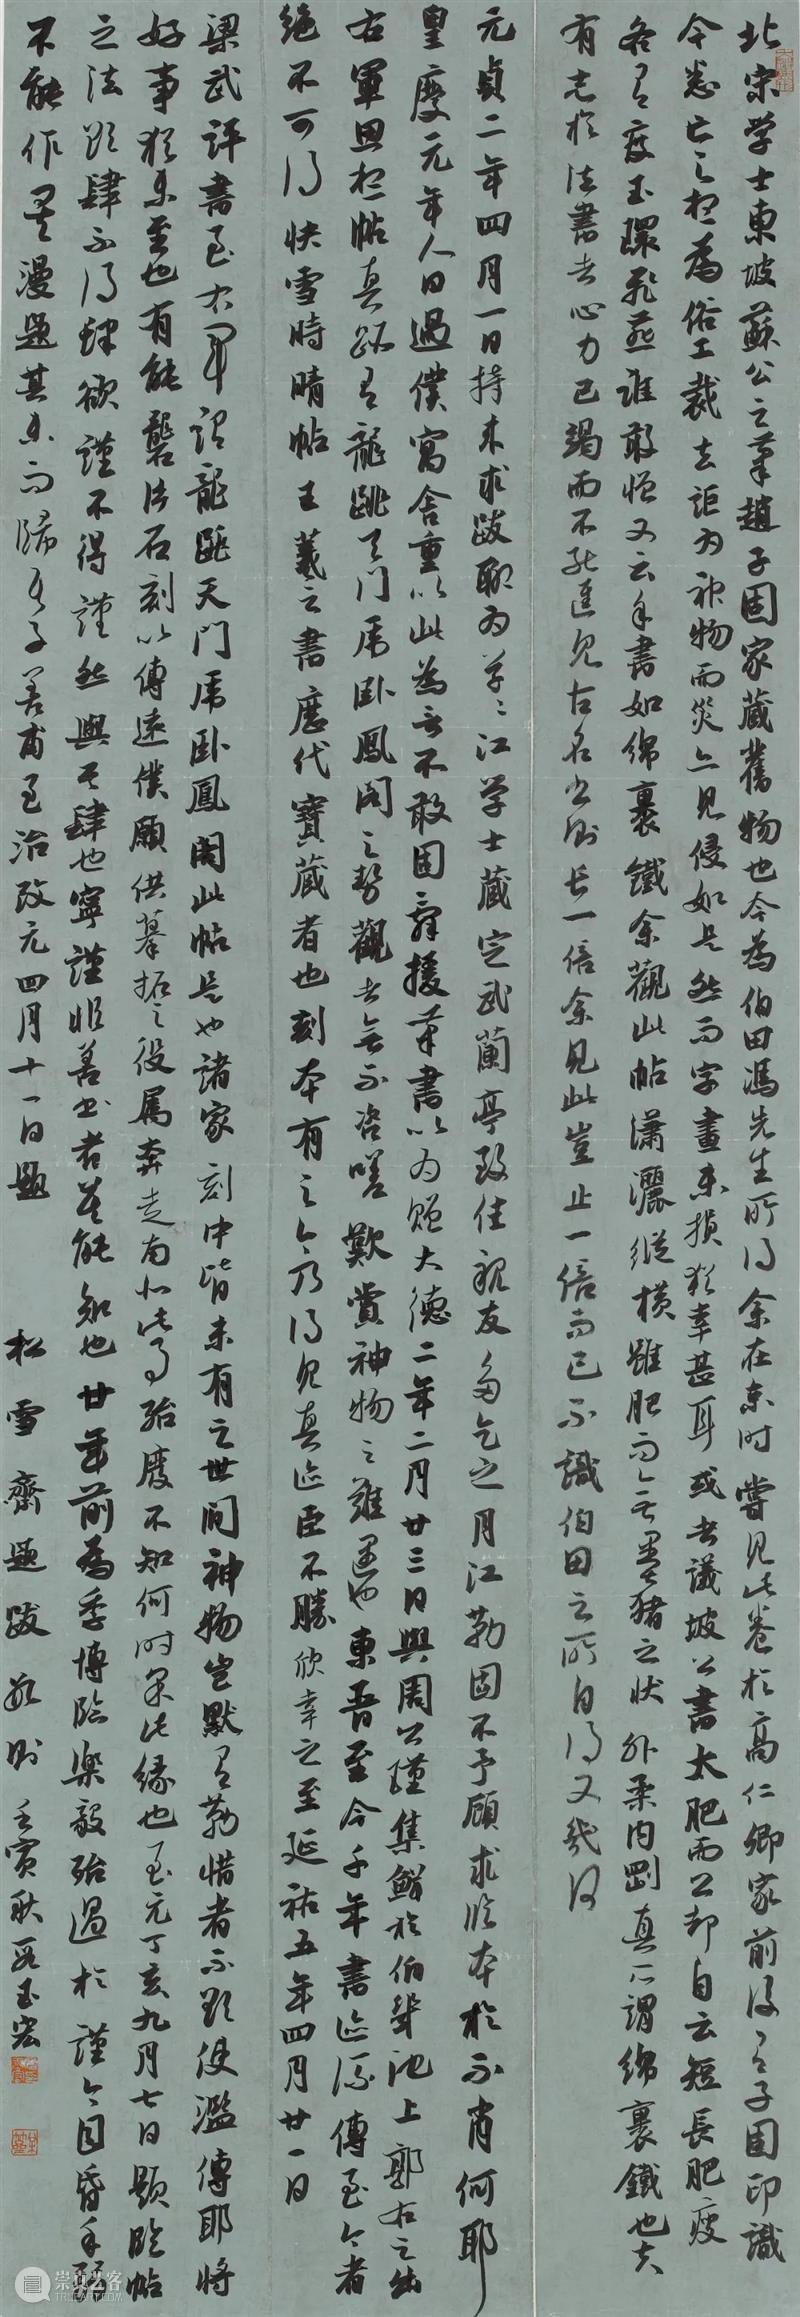 北宋学士東坡蘇公之筆趙子固家藏舊物也今為伯田馮先生所得余在京时嘗见此卷於高仁卿家前後有子固印識
今悉亡之想為俗工裁去詎为神物而災亦见侵如是然而字畫未損猶幸甚耳或者議坡公書太肥而公却自云短長肥瘦
各有度玉環飛燕誰敢憎又云余書如綿裹鐵余觀此帖潇灑縱横雖肥而无墨猪之状外柔内剛真所謂綿裹鐵也夫
有志於法書者心力已竭而不能進见古名书则长一倍余见此豈止一倍而已不識伯田之所自得又幾何
元貞二年四月一日持来求跋聊为
江学士藏定武蘭亭致佳親友多乞之月江靳固不予顧求临本於不肖何耶
皇慶元年人日過僕寓舍重以此為言不敢固辞援筆書以为贈大德二年二月廿三日與周公謹集鮮於伯幾池上郭右之出
右軍思想帖真跡有龍跳天门虎卧鳳阁之势觀者无不咨嗟歎賞神物之難遇也東晋至今千年書迹流傳至今者
绝不可得快雪時晴帖王羲之書歷代寶藏者也刻本有之今乃得见真迹臣不勝欣幸之至延祐五年四月廿一日
梁武評書至右军謂龍跳天門虎卧鳳閣此帖是也諸家刻中皆未有之世间神物豈默有靳惜者不欲使濫傳耶將
好事猶未至也有能礱佳石刻以傳遠僕願供摹拓之役属奔走南北此事殆廢不知何时果此缘也至元丁亥九月七日題临帖
之法欲肆不得肆欲謹不得謹然與其肆也寧謹非善书者莫能知也廿年前為季博临樂毅殆過於謹今目昏手弱
不能作矣漫題其末而歸之子善甫至治改元四月十一日题
松雪齋題跋数则壬寅秋